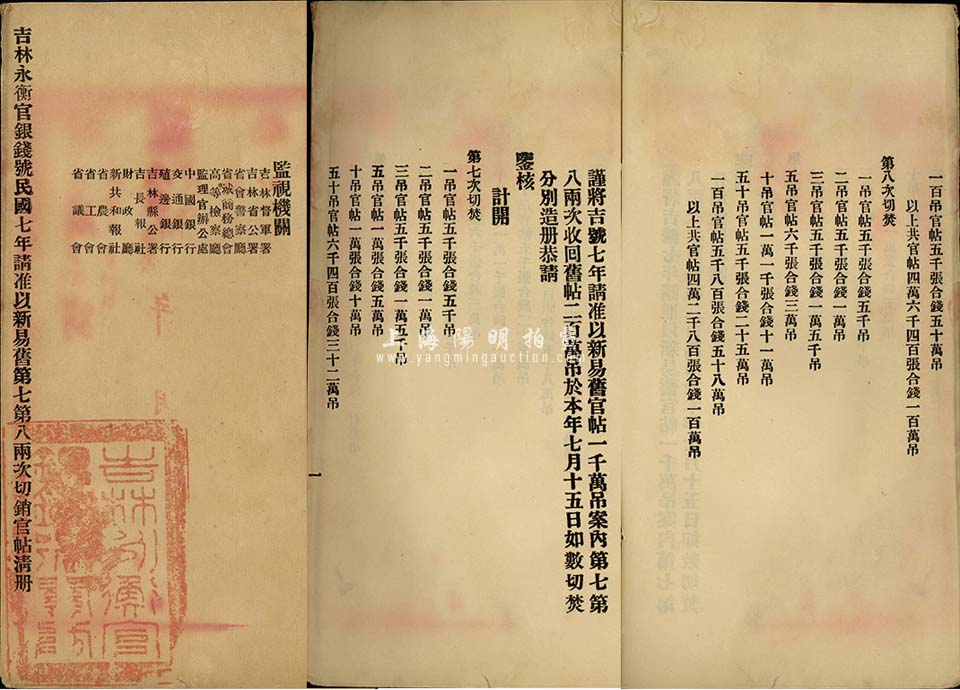 監視機關
吉林督軍署
吉林省公署
省會警察廳
省城商務總會
高等檢察廳
監理官辦公處
中國銀行
交通銀行
殖邊銀行
吉林縣公署
吉長報社
財政廳
新共和報社
省農會
省工會
省議會
年 月
吉林永衡官銀錢號民國七年請准以新易舊第七第八兩次切銷官帖清册
吉林永衡官
謹將吉號七年請准以新易舊官帖一千萬吊案內第七第
八兩次收回舊帖二百萬吊於本年七月十五日如數切焚
分別造册恭請
鑒核
計開
第七次切焚
一吊官帖五千張合錢五千吊
二吊官帖五千張合錢一萬吊
三吊官帖五千張合錢一萬五千吊
五吊官帖一萬張合錢五萬吊
十吊官帖一萬張合錢十萬吊
五十吊官帖六千四百張合錢三十二萬吊
一
一百吊官帖五千張合錢五十萬吊
以上共官帖四萬六千四百張合錢一百萬吊
第八次切焚
一吊官帖五千張合錢五千吊
二吊官帖五千張合錢一萬吊
三吊官帖五千張合錢一萬五千吊
五吊官帖六千張合錢三萬吊
十吊官帖一萬一千張合錢十一萬吊
五十吊官帖五千張合錢二十五萬吊
一百吊官帖五千八百張合錢五十八萬吊
以上共官帖四萬二千八百張合錢一百萬吊
上海陽明拍賣
www.yangmingauction.com